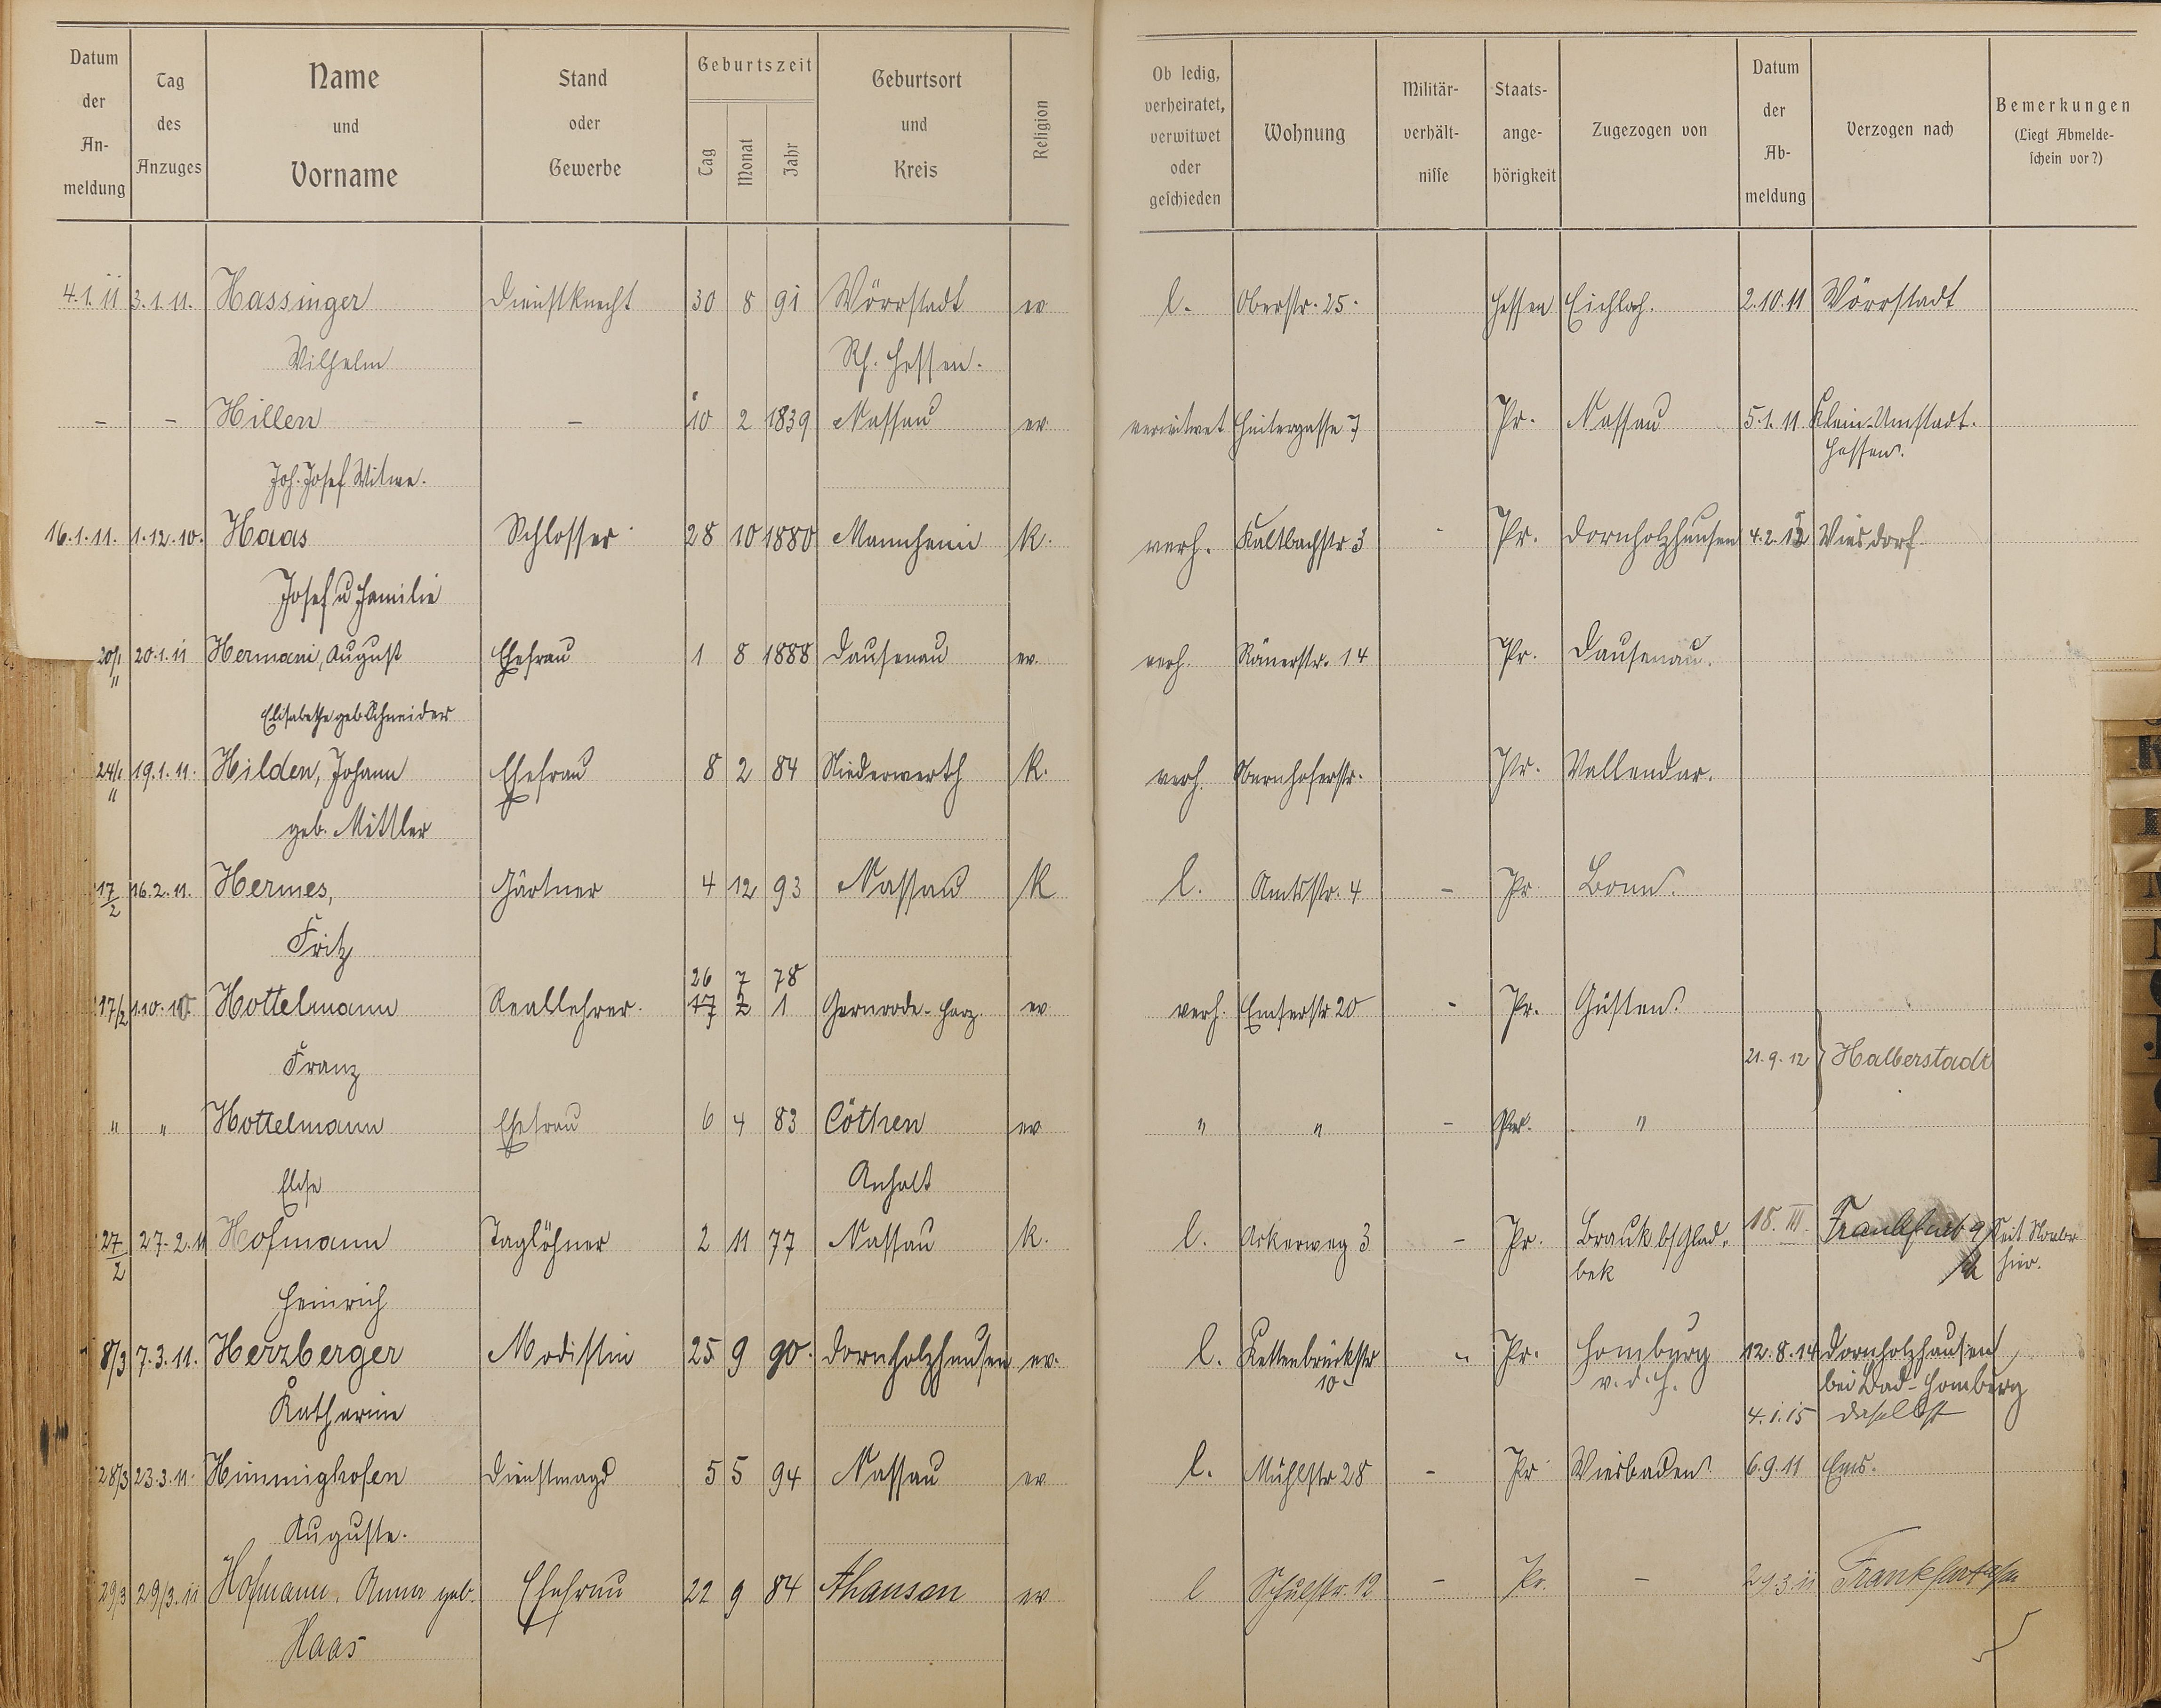 Datum der Anmeldung | Tag des Anzuges | Name und Vorname | Stand oder Gewerbe | Geburtszeit Tag Monat Jahr | Geburtsort und Kreis | Religion | Ob ledig, verheiratet, verwitwet oder geschieden | Wohnung | Militärverhältnisse | Staatsangehörigkeit | Zugezogen von | Datum der Abmeldung | Verzogen nach | Bemerkungen (Liegt Abmeldeschein vor?)
4.1.11 3.1.11. Hassinger Dienstknecht 30 8 91 Wörrstadt ev l. Oberstr. 25. Hessen Eichloch. 2.10.11 Wörrstadt
Wilhelm Rh. Hessen.
- - Hillen - 10 2 1839 Nassau ev verwitwet Hintergasse 7 Pr. Nassau 5.1.11 Klein-Umstadt.
Joh. Josef Witwe. Hessen.
16.1.11. 1.12.10. Haas Schlosser 28 10 1880 Mannheim K. verh. Kaltbachstr 3 - Pr. Dornholzhausen 4.2. Wiesdorf
Josef u Familie
20/1 11 20.1.11 Hermani, August Ehefrau 1 8 1888 Dausenau ev. verh. Römerstr. 14 Pr. Dausenau.
Elisabethe geb Schneider
24/1 11 19.1.11. Hilden, Johann Ehefrau 8 2 84 Niederwerth K. verh. Obernhoferstr. Pr. Vallendar.
geb. Mittler
17/2 16.2.11. Hermes, Gärtner 4 12 93 Nassau K l. Amtsstr. 4 - Pr Bonn.
Fritz
26 7 78
17/2 1.10.10 Hottelmann Reallehrer. 17 2 1 Gernrode-Harz. ev verh. Emserstr 20 - Pr. Güsten.
Franz 21.9.12 } Halberstadt
" " Hottelmann Ehefrau 6 4 83 Cöthen ev " " - Pr. "
Else Anhalt
27/2 27.2.11 Hofmann Taglöhner 2 11 77 Nassau K. l. Ackerweg 3 - Pr. Brauk b/Glad- 18. III. Frankfurt a/ Seit
bek M hier.
Heinrich
8/3 7.3.11. Herzberger Modistin 25 9 90. Dornholzhausen ev. l. Kettenbrückstr - Pr. Homburg 12.8.14 Dornholzhausen,
10- v.d.H. bei Bad-Homburg
Katharine 4.1.15 daselbst
28/3 23.3.11. Himmighofen Dienstmagd 5 5 94 Nassau ev l. Mühlstr 28 - Pr Wiesbaden 6.9.11 Ems.
Auguste.
29/3 29/3.11 Hofmann, Anna geb. Ehefrau 22 9 84 Ahausen ev l Schulstr. 12 - Pr. - 29.3.11 Frankfurt
Haas